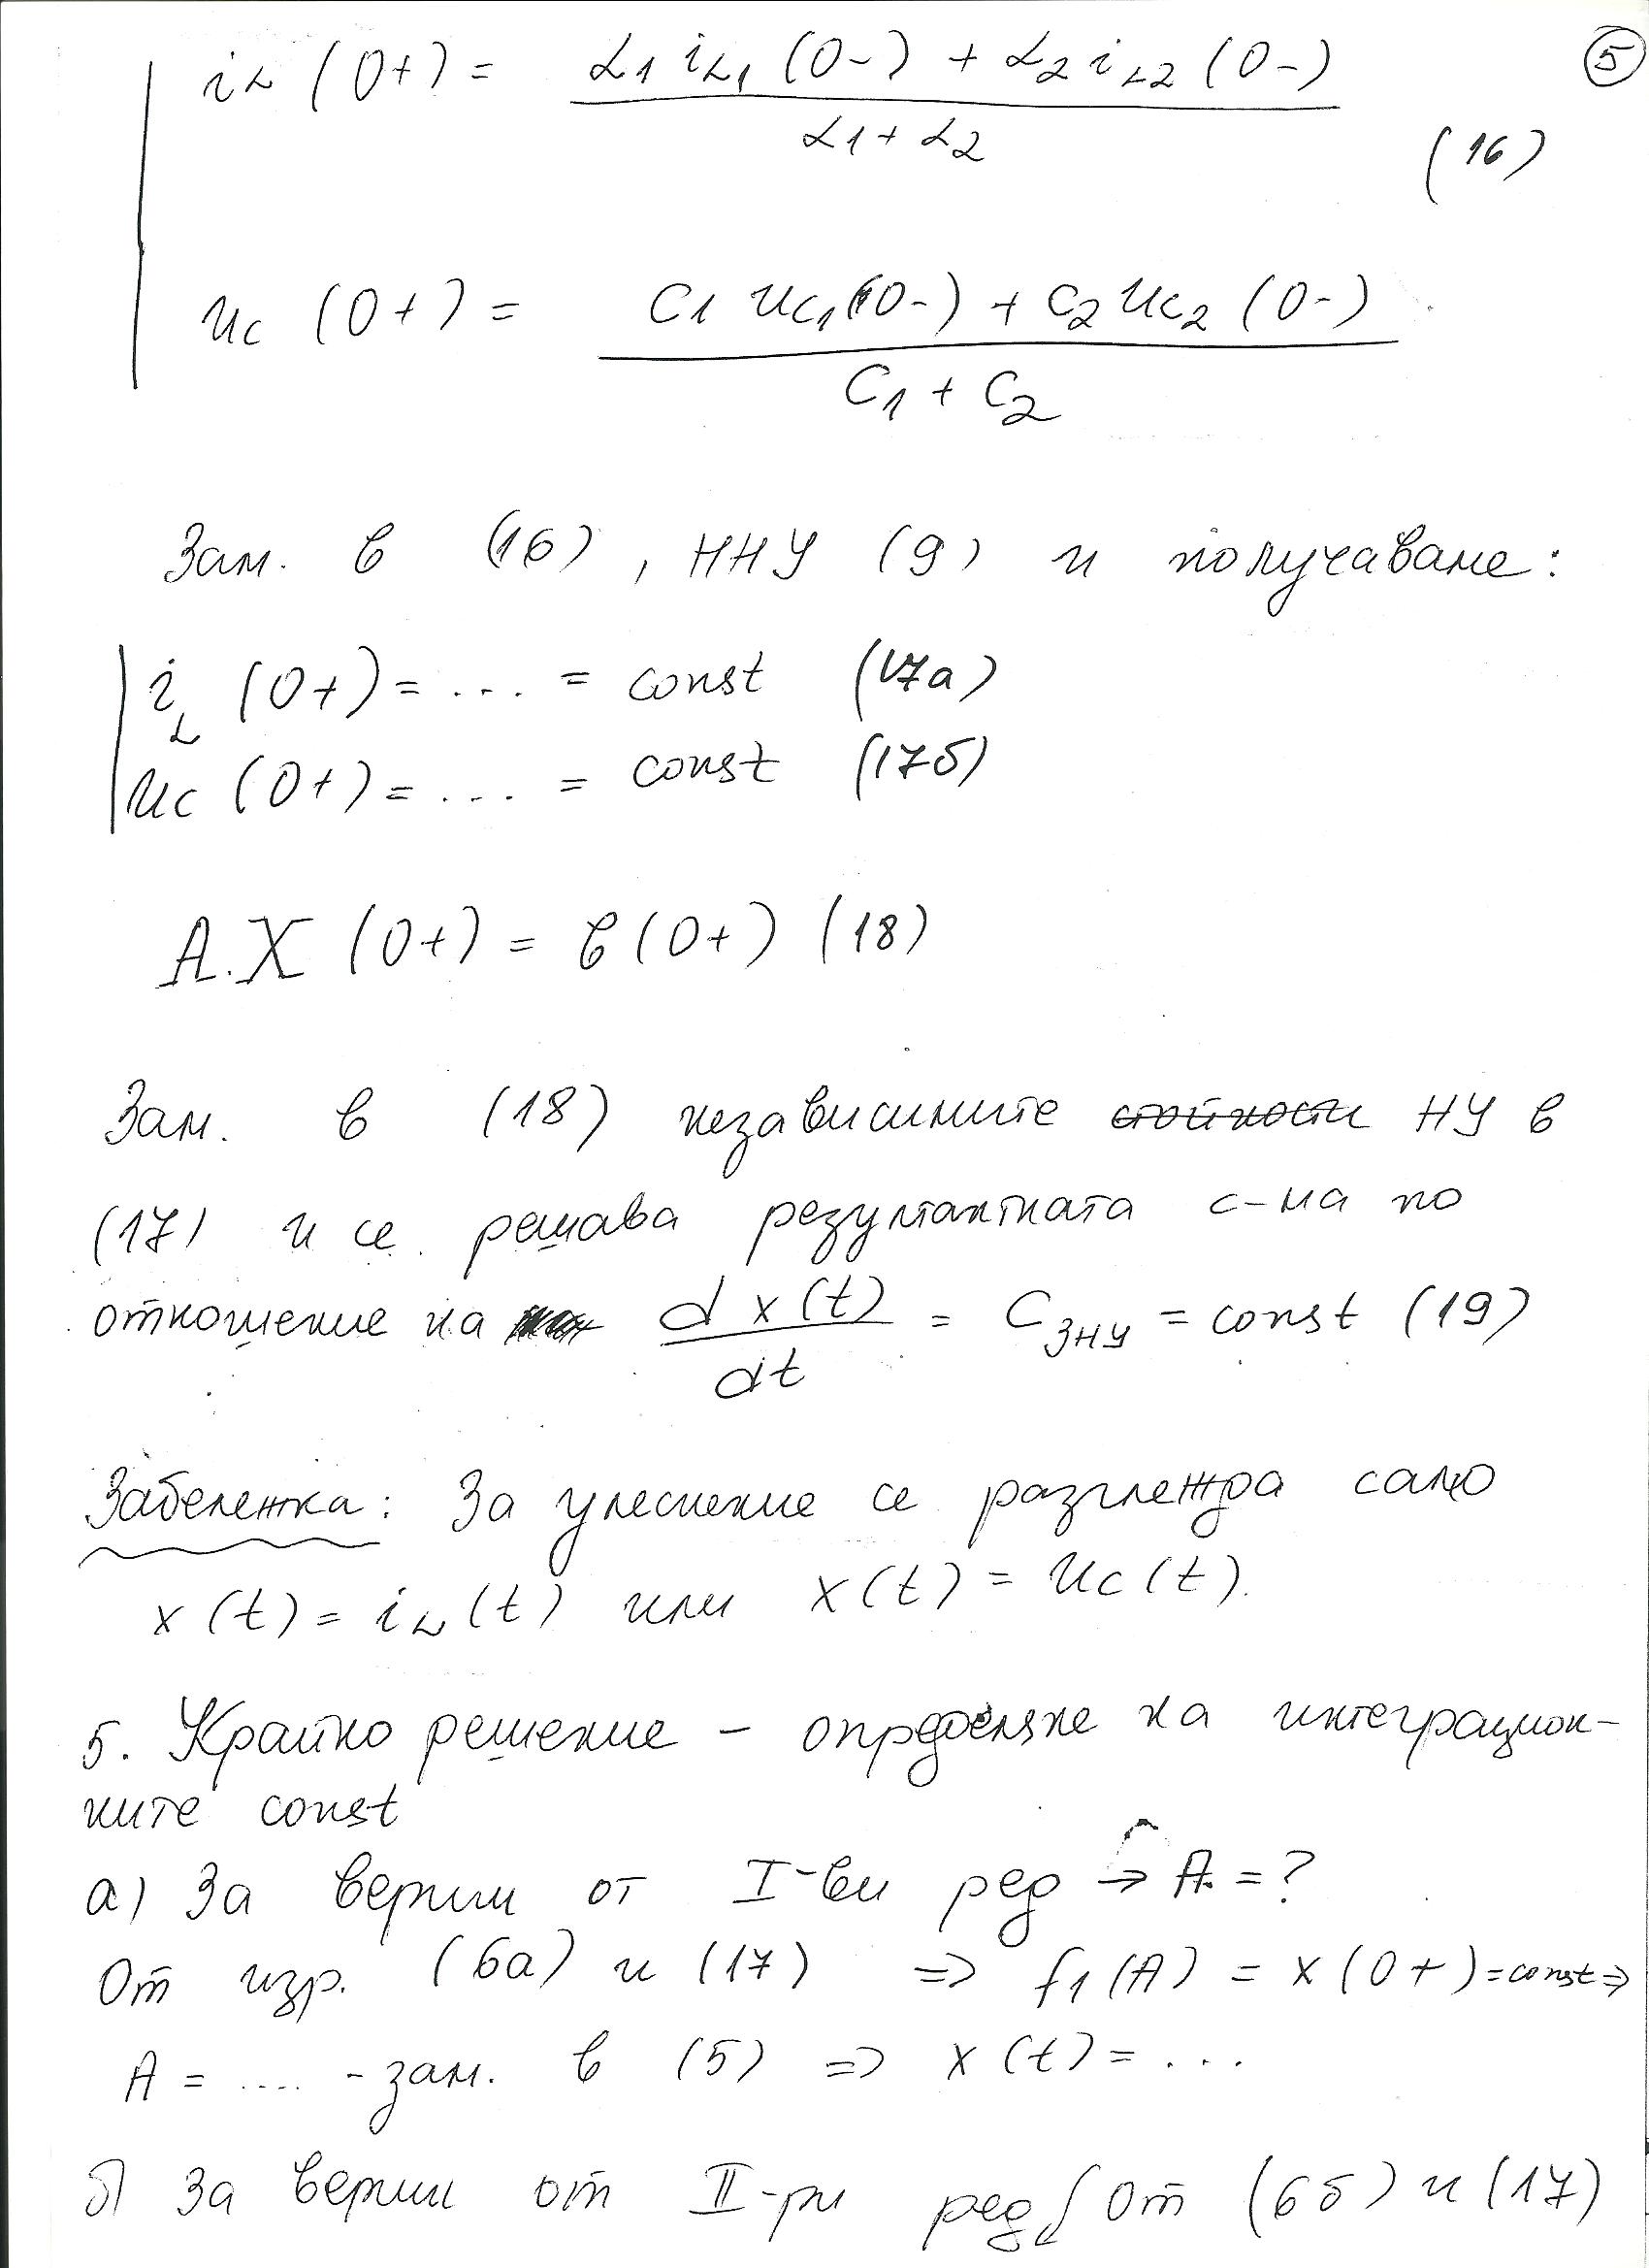 5
iL (0+) = L1 iL1 (0-) + L2 iL2 (0-)
L1 + L2
(16)
uc (0+) = C1 uc1 (0-) + C2 uc2 (0-)
C1 + C2
Зам. в (16), ННУ (9) и получаваме:
iL (0+) = ... = const (17а)
uc (0+) = ... = const (17б)
A.X (0+) = b (0+) (18)
Зам. в (18) независимите стойности НУ в
(17) и се решава резултатната с-ма по
отношение на d x(t) / dt = CЗНУ = const (19)
Забележка: За улеснение се разглежда само
x(t) = iL(t) или x(t) = uc(t).
5. Крайно решение - определяне на интеграцион-
ните const
а) За вериги от I-ви ред → A = ?
От изр. (6а) и (17) => f1(A) = x(0+) = const =>
A = .... - зам. в (5) => x(t) = ...
б) За вериги от II-ри ред От (6б) и (17)